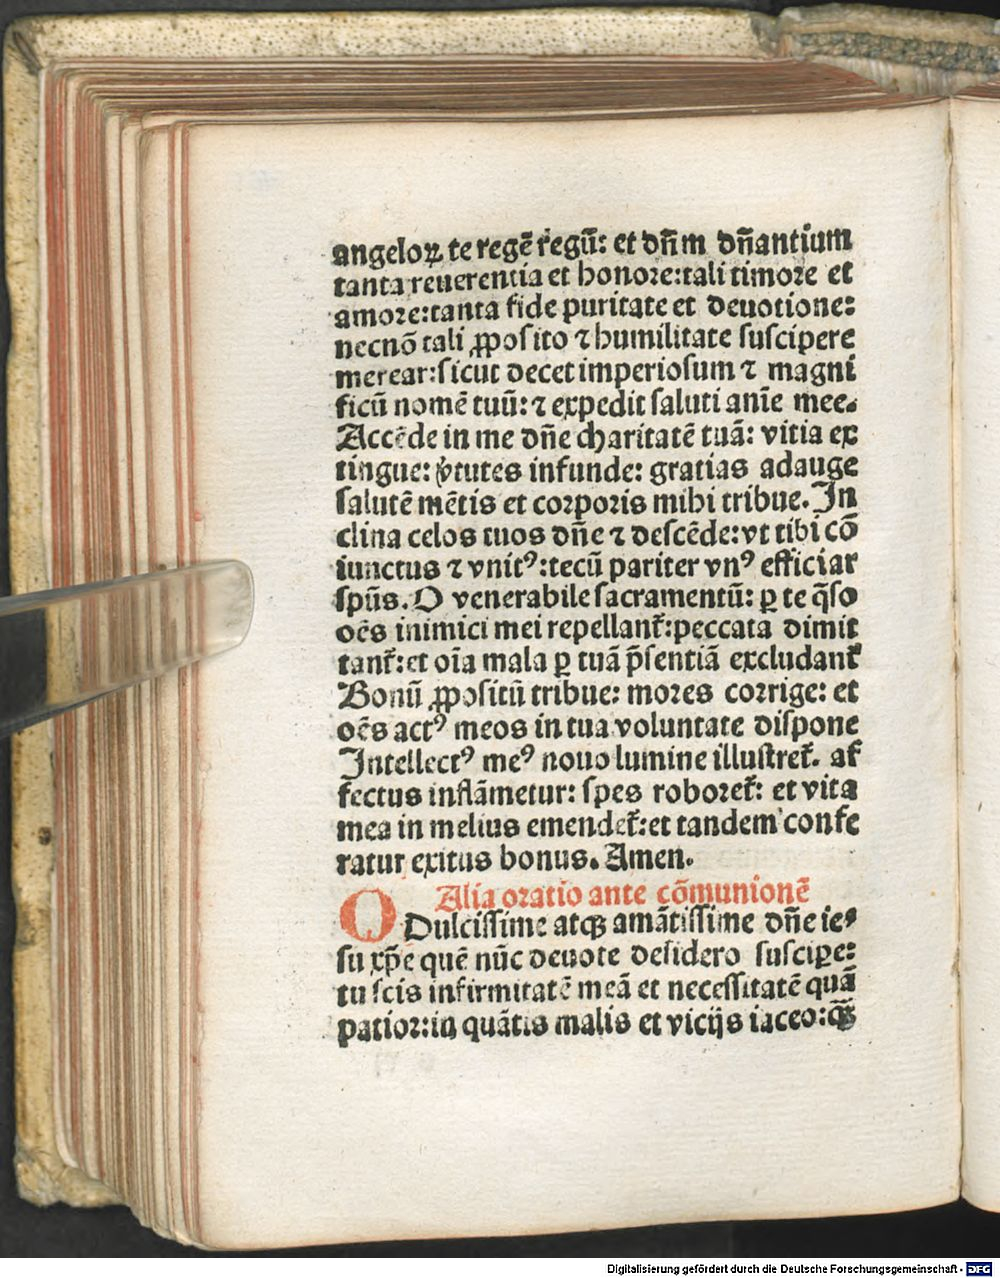 angeloꝝ te regē regū: et dn̄m dn̄antium
tanta reuerentia et honoꝛe: tali timoꝛe et
amoꝛe: tanta fide puritate et deuotione:
necnō tali ꝓposito ⁊ humilitate suscipere
merear: sicut decet imperiosum ⁊ magni
ficū nomē tuū: ⁊ expedit saluti anīe mee.
Accēde in me dn̄e charitatē tuā: vitia ex
tingue: v̓tutes infunde: gratias adauge
salutē mētis et coꝛpoꝛis mihi tribue. In
clina celos tuos dn̄e ⁊ descēde: vt tibi cō
iunctus ⁊ vnitꝰ: tecū pariter vnꝰ efficiar
spūs. O venerabile sacramentū: ꝑ te q̄so
oēs inimici mei repellant᷑: peccata dimit
tant᷑: et oīa mala ꝑ tuā p̄sentiā excludant᷑
Bonū ꝓpositū tribue: moꝛes coꝛrige: et
oēs actꝰ meos in tua voluntate dispone
Intellectꝰ meꝰ nouo lumine illustret᷑. af
fectus inflāmetur: spes roboꝛet᷑: et vita
mea in melius emendet᷑: et tandem confe
ratur exitus bonus. Amen.
Alia oꝛatio ante cōmunionē
O Dulcissime atqꝫ amātissime dn̄e ie⸗
su xp̄e quē nūc deuote desidero suscipe:
tu scis infirmitatē meā et necessitatē quā
patioꝛ: in quātis malis et vicijs iaceo: q̄ꝫ
Digitalisierung gefördert durch die Deutsche Forschungsgemeinschaft - DFG